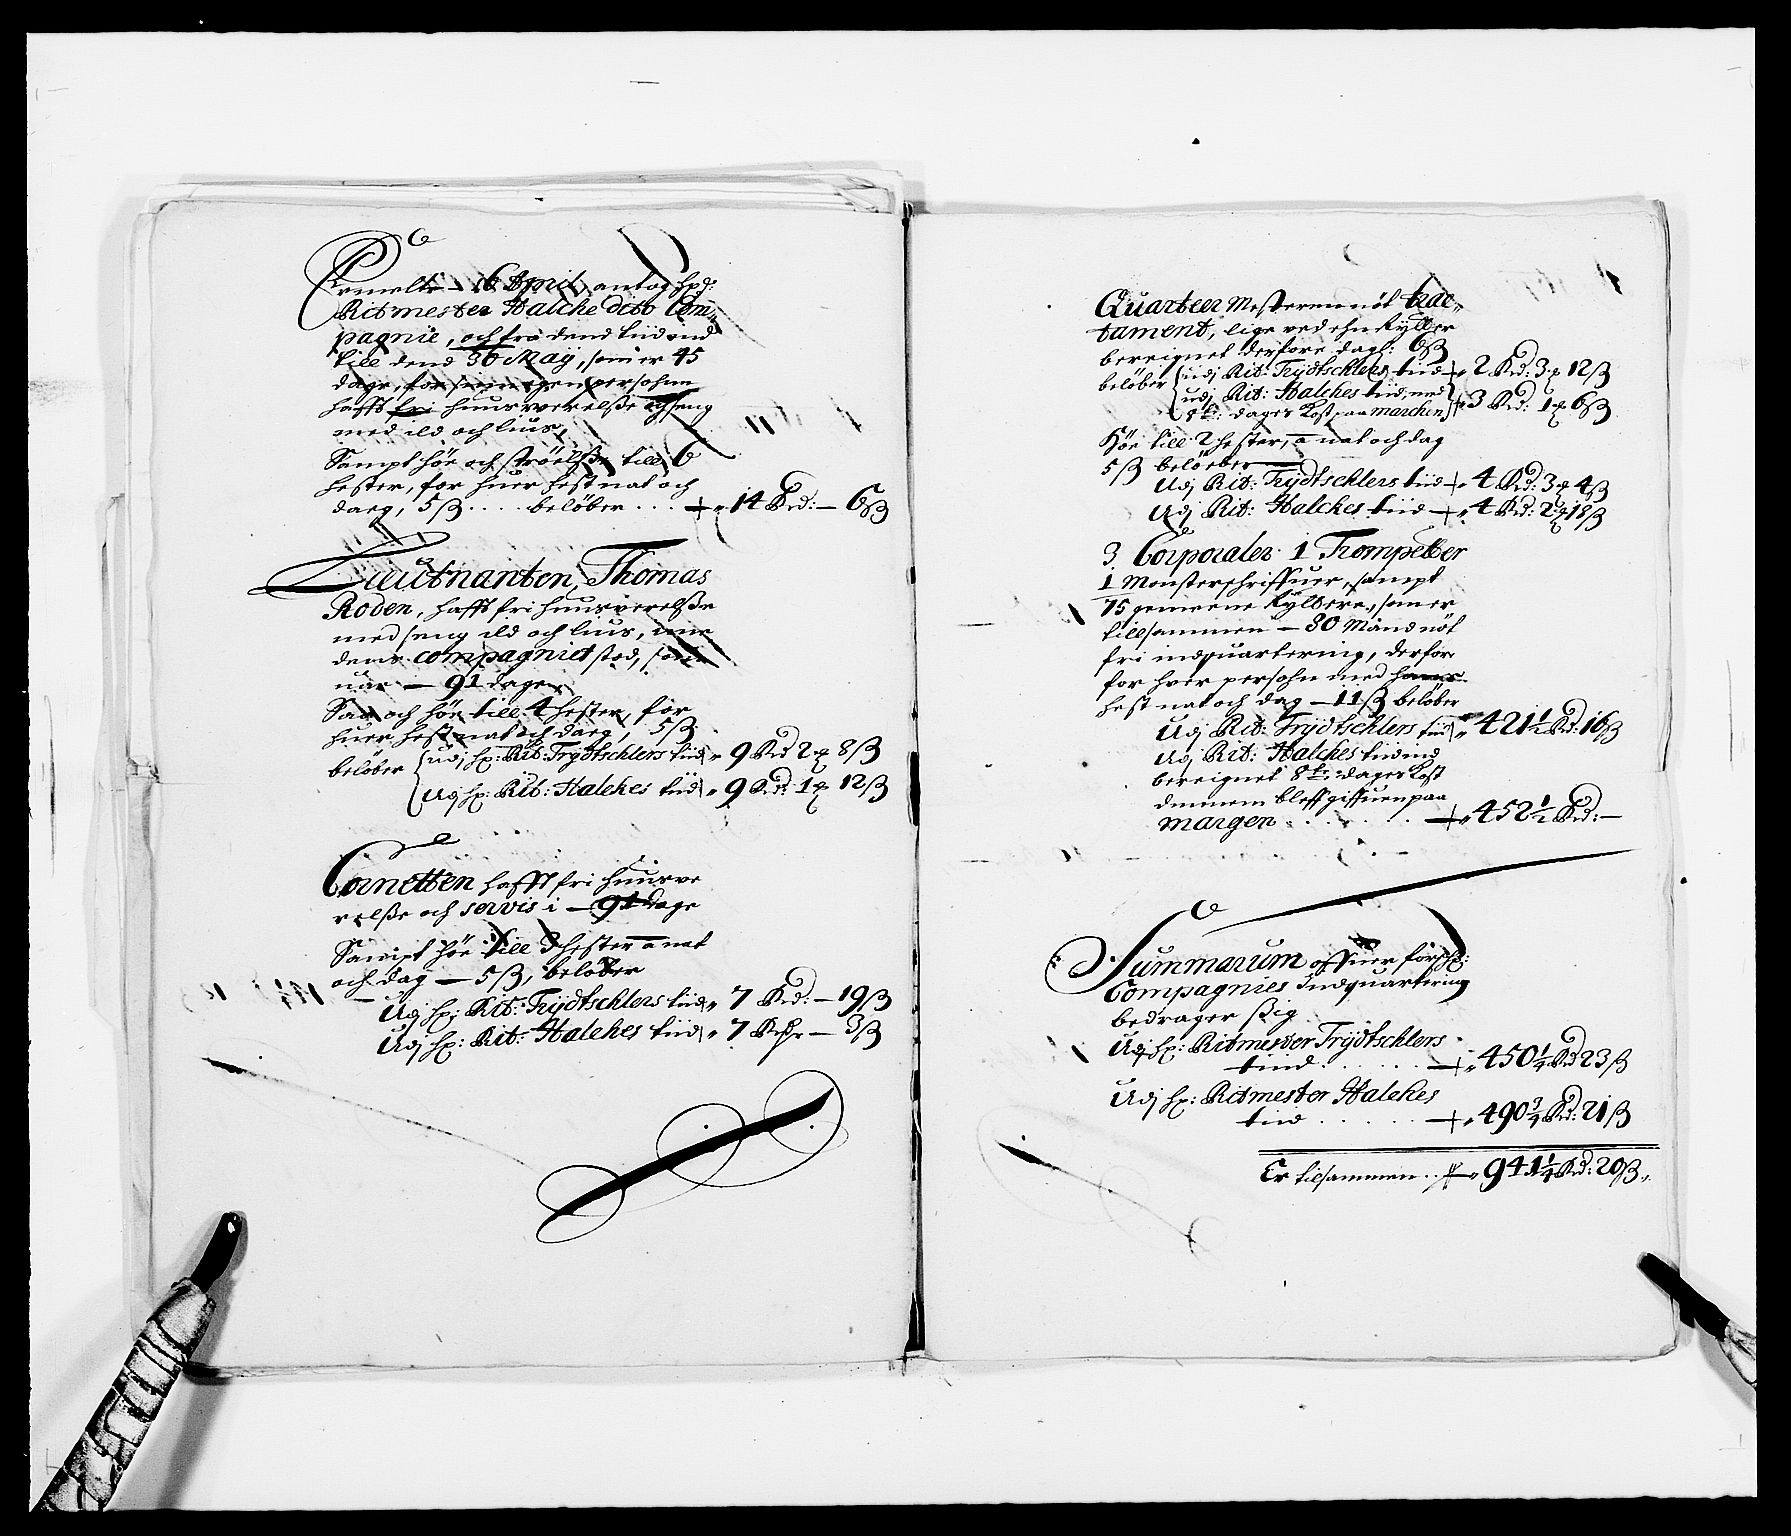 16 April antog hpd:
Ritmester Halche ditto Com-
pagnie, och fra dend tiid ind
till dend 30 May, som er 45
dage, for sin egen persohn
hafft fri huusverelsse och seng
med ild och lius,
Sampt höe och ströelsse till 6
hester, for huer hest nat och
dag, 5 ß .... belöber ... 14 Rd: — 6 ß
Lieutnanten Thomas
Roden, hafft fri huusverelsse
med seng ild och lius, imens
dend compagniet stod, som
uar — 91 dage,
Saa och höe till 4 hester, for
huer hest nat och dag, 5 ß
belöber udj hr: Rit: Trydtschlers tiid 9 Rd 2 8 ß
Udj hr: Rit: Halches tiid 9 Rd: 1 12 ß
Cornetten hafft fri huusve
relsse och servis i — 91 dage
Sampt höe till 3 hester a nat
och dag — 5 ß, belöber
Udj hr: Rit: Trydtschlers tiid 7 Rd: — 19 ß
Udj hr: Rit: Halches tiid 7 — 3 ß
Quarteer Mesteren nöt trac-
tament, lige ved ehn Rytter
bereignet derfore dagl: 6 ß
belöber udj Rit: Trydtschlers tiid 2 Rd: 3 12 ß
udj Rit: Halches tiid, med
8te: dages Kost paa marchen 3 Rd: 1 6 ß
Höe till 2 hester, a nat och dag
5 ß belöeber
Udj Rit: Trydtschlers tiid 4 Rd: 3 4 ß
Udj Rit: Halches tiid 4 Rd: 2 18 ß
3 Corporaler 1 Trompetter
1 Mönsterschriffuer, sampt
75 gemeene Ryttere, som er
tillsammen — 80 Mand nöt
fri indquartering, derfor
for hver persohn med hans
hest nat och dag — 11 ß belöber
Udj Rit: Trydtschlers tiid 421½ Rd: 16 ß
Udj Rit: Halches tiid ind
bereignet 8te: dages Kost
dennem bleff giffuen paa
margen . . . . . . 452½ Rd: —
Summarum offuer forschr:
Compagnies Indquartering
bedrager ßig
Udj hr: Ritmester Trydtschlers
tiid . . . . . 450¼ Rd 23 ß
Udj hr: Ritmester Halches
tiid . . . . . 490¾ Rd: 21 ß
Er tilsammen .. 941¼ Rd: 20 ß